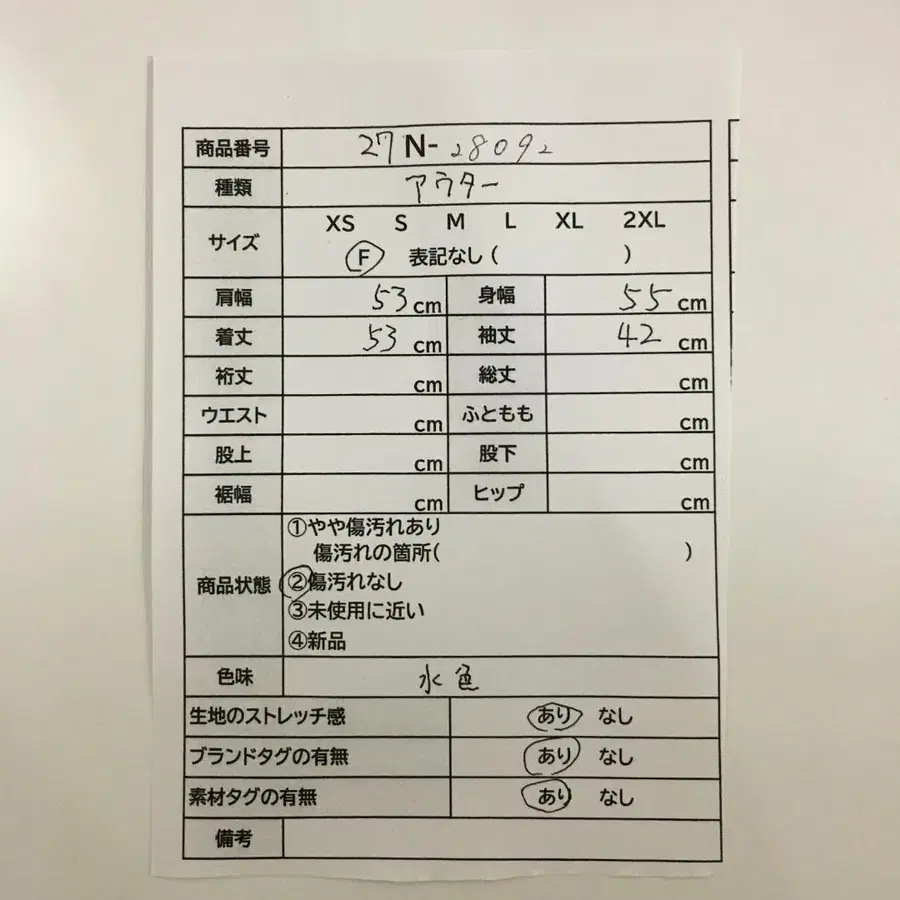 商品番号 27N-28092
種類 アウター
サイズ XS S M L XL 2XL
F 表記なし ( )
肩幅 53 cm 身幅 55 cm
着丈 53 cm 袖丈 42 cm
裄丈 cm 総丈 cm
ウエスト cm ふともも cm
股上 cm 股下 cm
裾幅 cm ヒップ cm
商品状態 ①やや傷汚れあり
傷汚れの箇所( )
②傷汚れなし
③未使用に近い
④新品
色味 水色
生地のストレッチ感 あり なし
ブランドタグの有無 あり なし
素材タグの有無 あり なし
備考